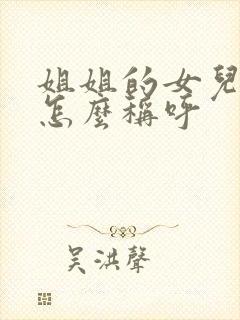 姐姐的女兒
怎麼稱呼
吳洪聲